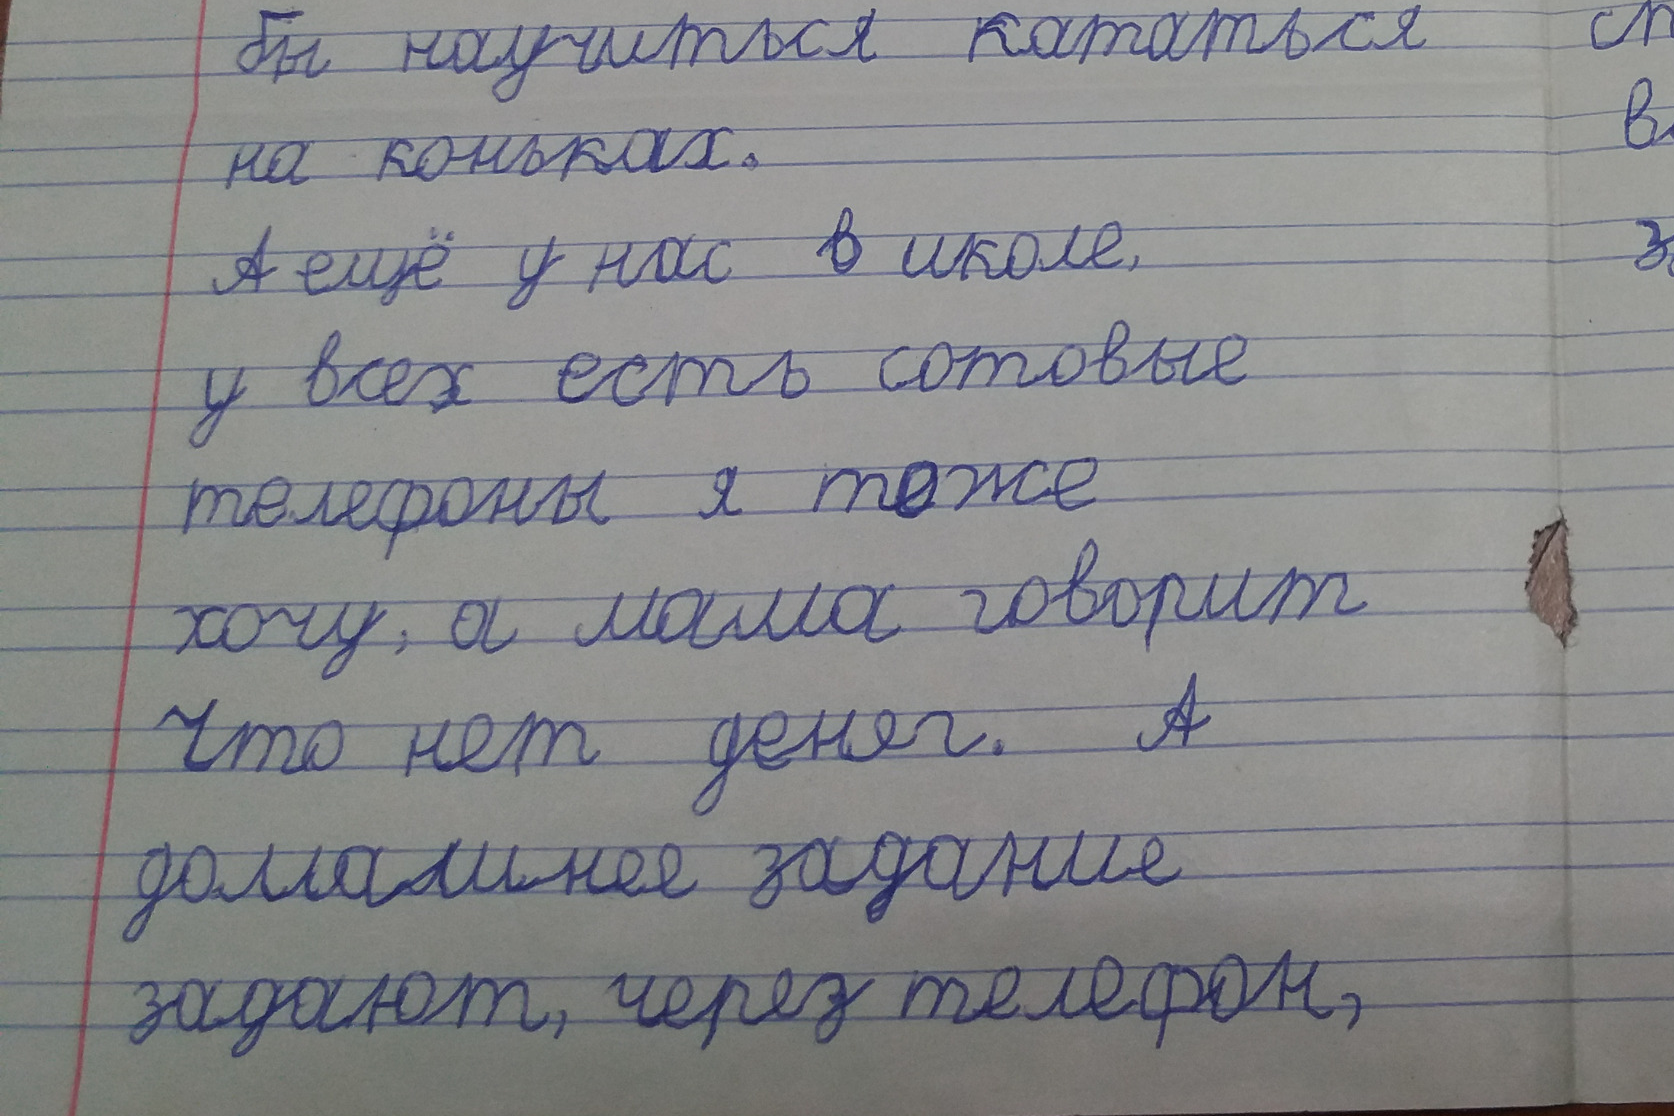 бы научиться кататься
на коньках.
А ещё у нас в школе,
у всех есть сотовые
телефоны я тоже
хочу, а мама говорит
Что нет денег. А
домашнее задание
задают, через телефон,